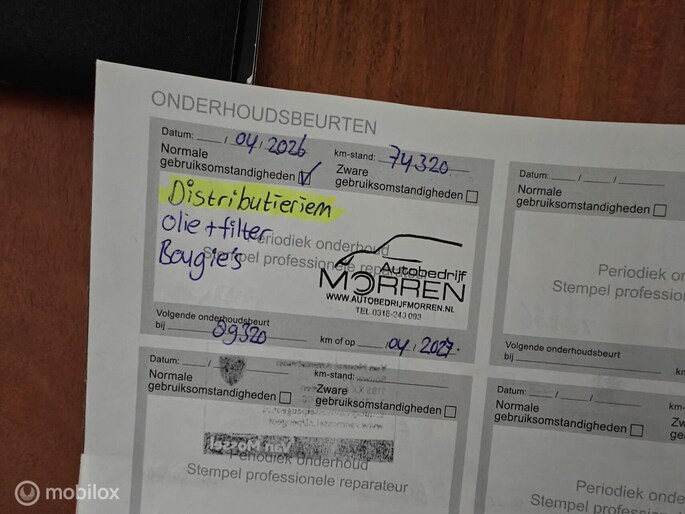 ONDERHOUDSBEURTEN
Datum: __/04/2026 km-stand: 74320
Normale gebruiksomstandigheden ☑ Zware gebruiksomstandigheden ☐
Distributieriem
olie + filter
Bougie's
Periodiek onderhoud
Stempel professionele reparateur
Autobedrijf
MORREN
WWW.AUTOBEDRIJFMORREN.NL
TEL. 0318-240 093
Volgende onderhoudsbeurt
bij 89320 km of op __/04/2027.
Datum: __/__/__ km-stand:
Normale gebruiksomstandigheden ☐ Zware gebruiksomstandigheden ☐
Van Mossel
Periodiek onderhoud
Stempel professionele reparateur
Datum: __/__/__ km-
Normale
gebruiksomstandigheden ☐
Periodiek on
Stempel profession
Volgende onderhoudsbeurt
bij km
Datum: __/__/__ km-s
Normale
gebruiksomstandigheden ☐ Zwa
gebr
Periodiek ond
Stempel professione
mobilox